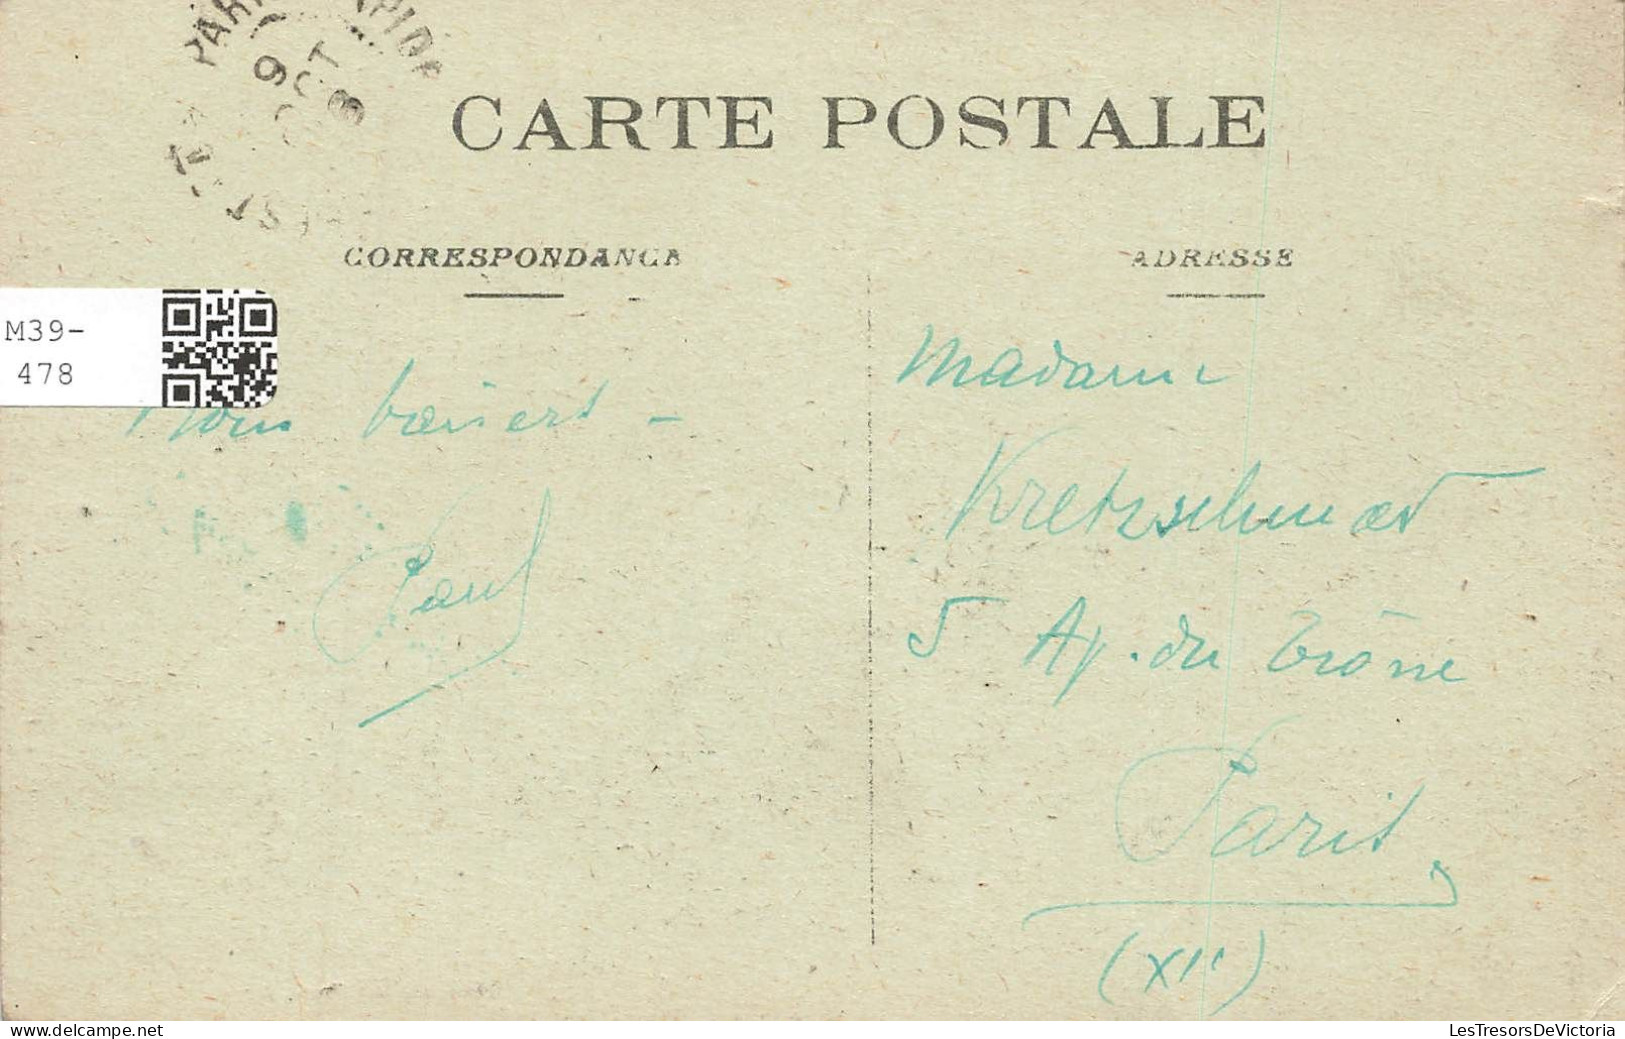 CARTE POSTALE
CORRESPONDANCE
ADRESSE
M39-
478
baisers -
Paul
Madame
Kretzschmar
5 Av. du Trône
Paris
(XIe)
9
OCT
LesTresorsDeVictoria
www.delcampe.net